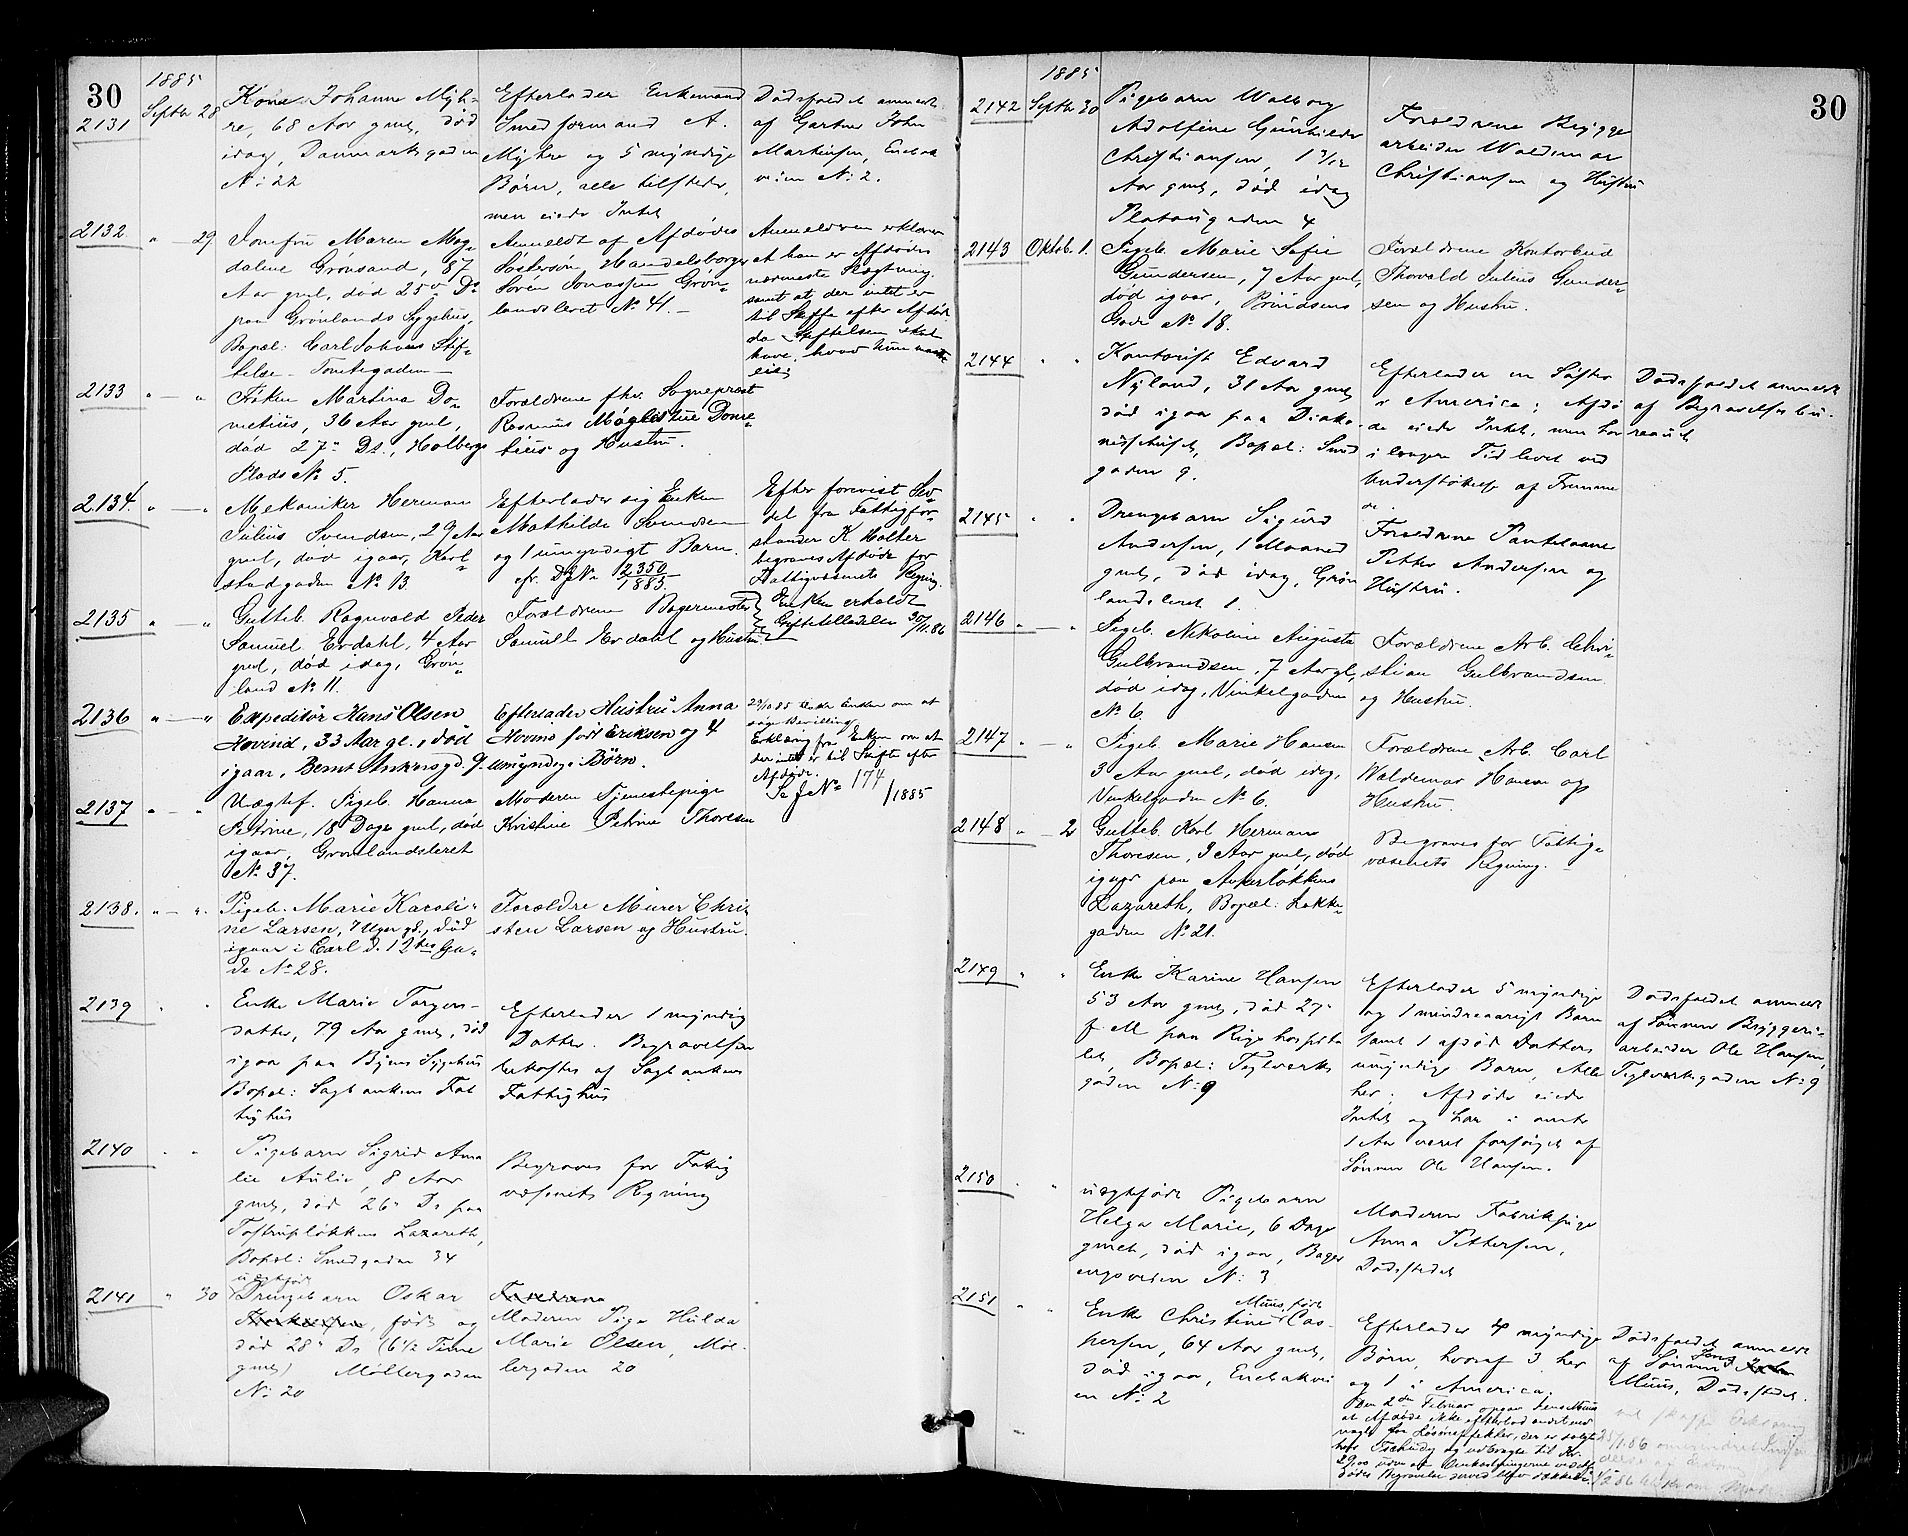 30
1885
2131
Septbr 28
Kone Johanne Myh-
re, 68 Aar gml, død
idag, Danmarksgaden
No 22
Efterlader Enkemand
Smedformand A.
Myhre og 5 myndige
Børn, alle tilstede,
men eiede Intet
Dødsfaldet anmeldt
af Gartner John
Martinsen, Enebak
veien No 2.
2132
" — 29
Jomfru Maren Mag-
dalene Grønsand, 87
Aar gml, død 25de Ds
paa Grønlands Sygehus,
Bopæl: Carl Johans Stif-
telse - Toftesgaden -
Anmeldt af Afdødes
Søstersøn, Handelsborger
Søren Jonassen Grøn-
landsleret No 41. -
Anmelderen erklærer
at han er Afdødes
nærmeste Slægtning,
samt at der intet er
til Skifte efter Afdøde
da Stiftelsen skal
have, hvad hun maatte
eie
2133
" — "
Frøken Martina Do-
metius, 36 Aar gml,
død 27de Ds., Holbergs
Plads No 5.
Forældrene fhv. Sognepræst
Rasmus Møglestue Dome-
tius og Hustru.
2134.
" — "
Mekaniker Herman
Julius Svendsen, 29 Aar
gml, død igaar, Karl-
stadgaden No 13.
Efterlader sig Enken
Mathilde Svendsen
og 1 umyndigt Barn.
cfr. DfNo 2350/1885.
Efter forevist Sed-
del fra Fattigfor-
stander K. Holter
begraves Afdøde for
Fattigvæsenets Regning.
Enken erholdt
Giftetilladelse 30/11.86
2135
" — "
Gutteb. Ragnvald Peder
Samuel Erdahl, 4 Aar
gml, død idag, Grøn-
land No 11.
Forældrene Bagermester
Samuel Erdahl og Hustru.
2136
" — "
Expeditør Hans Olsen
Hovind, 33 Aar gl., død
igaar, Bernt Ankersgd. 9.
Efterlader Hustru Anna
Hovind født Eriksen og 4
umyndige Børn.
Enken om at
søge Bevilling
Erklæring fra Enken om at
der intet er til Skifte efter
Afdøde.
Se JNo 174/1885
2137
" — "
Uægtef. Pigeb. Hanna
Petrine, 18 Dage gml, død
igaar, Grønlandsleret
No 37.
Moderen Tjenestepige
Kristine Petrine Thoresen
2138.
" — "
Pigeb. Marie Karoli-
ne Larsen, 7 Uger gl., død
igaar i Carl d. 12tes Ga-
de No 28.
Forældre Murer Chri-
sten Larsen og Hustru.
2139
" "
Enke Marie Torgers-
datter, 79 Aar gml, død
igaar paa Byens Sygehus
Bopæl: Sagbankens Fat
tighus
Efterlader 1 myndig
Datter. Begravelsen
bekostes af Sagbankens
Fattighus
2140
" "
Pigebarn Sigrid Ama
lie Aulie, 8 Aar
gml, død 26de Ds paa
Tostrupløkkens Lazareth,
Bopæl: Smedgaden 34
Begraves for Fattig
væsenets Regning
2141
" 30
uægtefødt
Drengebarn Oskar
, født og
død 28de Ds (6 1/2 Time
gml) Møllergaden
No 20
Forældrene
Moderen Pige Hulda
Marie Olsen, Møl-
lergaden 20
30
1885
2142
Septbr 30
Pigebarn Walborg
Adolfine Gunhilder
Christiansen, 1 3/12
Aar gml, død idag
Platousgaden 4
Forældrene Brygge
arbeider Waldemar
Christiansen og Hustru
2143
Oktob. 1.
Pigeb. Marie Sofie
Gundersen, 7 Aar gml,
død igaar, Prindsens
Gade No 18.
Forældrene Kontorbud
Thorvald Julius Gunder-
sen og Hustru.
2144
" "
Kontorist Edvard
Nyland, 31 Aar gml
død igaar paa Diako-
nissehuset, Bopæl: Smed
gaden 9.
Efterlader en Søster
i America; Afdø
de eiede Intet, men har
i længere Tid levet ved
Understøttelse af Fremme
de.
Dødsfaldet anmeldt
af Begravelsesbu-
reauet
2145
" "
Drengebarn Sigurd
Andersen, 1 Maaned
gml, død idag, Grøn
landsleret 1.
Forældrene Pantelaaner
Petter Andersen og
Hustru.
2146
" — "
Pigeb. Nikoline Augusta
Gulbrandsen, 7 Aar gl,
død idag, Vinkelgaden
No 6.
Forældrene Arb. Chri-
stian Gulbrandsen
og Hustru.
2147
" — "
Pigeb. Marie Hansen
3 Aar gml, død idag,
Vinkelgaden No 6.
Forældrene Arb. Carl
Waldemar Hansen og
Hustru.
2148
" — 2
Gutteb. Karl Herman
Thoresen, 3 Aar gml, død
igaar paa Ankerløkkens
Lazareth, Bopæl: Løkke-
gaden No 21.
Begraves for Fattig-
væsenets Regning. -
2149
" "
Enke Karine Hansen
53 Aar gml, død 27de
f M paa Rigshospita
let, Bopæl: Teglværks
gaden No 9
Efterlader 5 myndige
og 1 mindreaarigt Barn
samt 1 afdød Datters
umyndige Barn, Alle
her; Afdøde eiede
Intet og har i omtr
1 Aar været forsørget af
Sønnen Ole Hansen.
Dødsfaldet anmeldt
af Sønnen Bryggeri-
arbeider Ole Hansen,
Teglværksgaden No 9
2150
" "
uægtefødt Pigebarn
Helga Marie, 6 Dage
gmel, død igaar, Bager
engveien No 3
Moderen Fabrikpige
Anna Pettersen,
Dødsstedet
2151
" "
Muus, født
Enke Christine Cas-
persen, 64 Aar gml,
død igaar, Enebakvei
en No 2
Efterlader 4 myndige
Børn, hvoraf 3 her
og 1 i America;
Den 2den Februar opgav Jens Muus
at Afdøde ikke efterlod andet end
nogle Løsøreeffekter, der er solgt
hos Tschudy og udbragte til Kr.
29,00 uden at Omkostningerne ved Af-
dødes Begravelse derved blev dækkede.
Dødsfaldet anmeldt
Jens
af Sønnen
Muus, Dødsstedet.